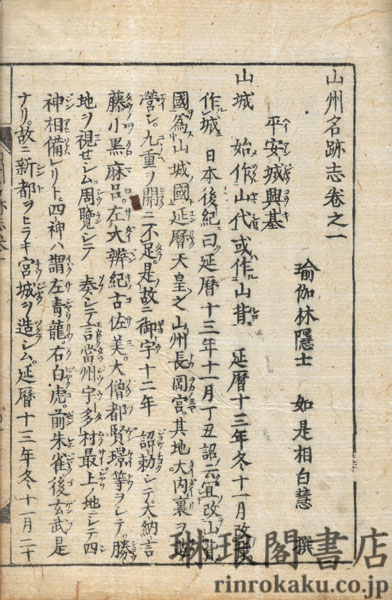 山州名跡志卷之一
瑜伽林隱士　如是相白慧　撰
平安城興基
山城　始作山代或作山背　延曆十三年冬十一月改
作城　日本後紀曰延曆十三年十一月丁丑詔云宜改山背
國為山城國延曆天皇之山州長岡宮其地大内裏ヲ
營シ九重ヲ開ニ不足是故ニ御宇十二年　詔勅シテ大納言
藤小黒麻呂左大辨紀古佐美大僧都賢璟等ヲシテ勝
地ヲ視セシム周覽シテ　奏シテ言當州宇多村最上ノ地ニシテ四
神相備レリト四神ハ謂左青龍右白虎前朱雀後玄武是
ナリ故ニ新都ヲヒラキ宮城ヲ造シム延曆十三年冬十一月二十
琳琅閣書店
rinrokaku.co.jp